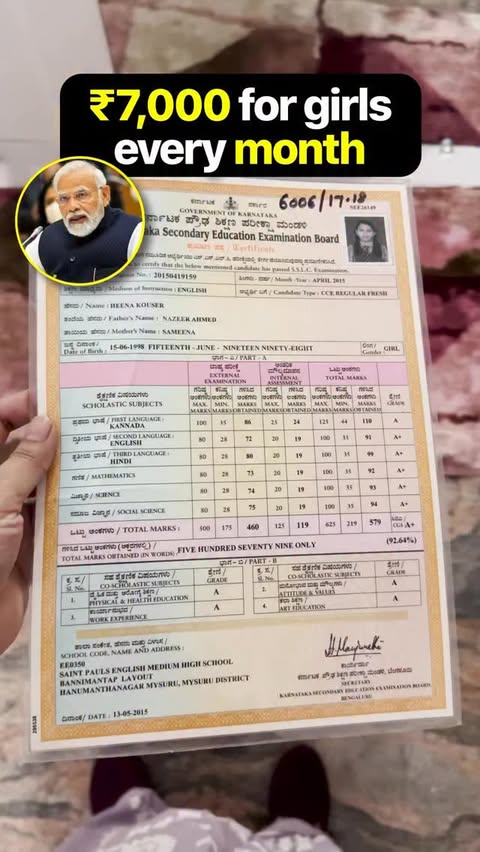 ₹7,000 for girls
every month
ಕರ್ನಾಟಕ ಸರ್ಕಾರ 6006/17-18
GOVERNMENT OF KARNATAKA
ಕರ್ನಾಟಕ ಪ್ರೌಢ ಶಿಕ್ಷಣ ಪರೀಕ್ಷಾ ಮಂಡಳಿ
Secondary Education Examination Board
Certificate
certify that the below mentioned candidate has passed S.S.L.C. Examination.
No.: 20150419159 Month -Year : APRIL 2015
Medium of Instruction : ENGLISH Candidate Type : CCE REGULAR FRESH
ಹೆಸರು / Name : HEENA KOUSER
ತಂದೆಯ ಹೆಸರು / Father's Name : NAZEER AHMED
ತಾಯಿಯ ಹೆಸರು / Mother's Name : SAMEENA
ಹುಟ್ಟಿದ ದಿನಾಂಕ / Date of Birth : 15-06-1998 FIFTEENTH - JUNE - NINETEEN NINETY-EIGHT ಲಿಂಗ / Gender : GIRL
ಭಾಗ - ಎ / PART - A
EXTERNAL EXAMINATION INTERNAL ASSESSMENT TOTAL MARKS
SCHOLASTIC SUBJECTS MAX. MARKS MIN. MARKS MARKS OBTAINED MAX. MARKS MARKS OBTAINED MAX. MARKS MIN. MARKS MARKS OBTAINED GRADE
ಪ್ರಥಮ ಭಾಷೆ / FIRST LANGUAGE :
KANNADA 100 35 86 25 24 125 44 110 A
ದ್ವಿತೀಯ ಭಾಷೆ / SECOND LANGUAGE :
ENGLISH 80 28 72 20 19 100 35 91 A+
ತೃತೀಯ ಭಾಷೆ / THIRD LANGUAGE :
HINDI 80 28 80 20 19 100 35 99 A+
ಗಣಿತ / MATHEMATICS 80 28 73 20 19 100 35 92 A+
ವಿಜ್ಞಾನ / SCIENCE 80 28 74 20 19 100 35 93 A+
ಸಮಾಜ ವಿಜ್ಞಾನ / SOCIAL SCIENCE 80 28 75 20 19 100 35 94 A+
ಒಟ್ಟು ಅಂಕಗಳು / TOTAL MARKS : 500 175 460 125 119 625 219 579 A+
TOTAL MARKS OBTAINED (IN WORDS) FIVE HUNDRED SEVENTY NINE ONLY (92.64%)
ಭಾಗ - ಬಿ / PART - B
CO-SCHOLASTIC SUBJECTS GRADE CO-SCHOLASTIC SUBJECTS GRADE
1. PHYSICAL & HEALTH EDUCATION A 2. ATTITUDE & VALUES A
3. WORK EXPERIENCE A 4. ART EDUCATION A
SCHOOL CODE, NAME AND ADDRESS :
EE0350
SAINT PAULS ENGLISH MEDIUM HIGH SCHOOL
BANNIMANTAP LAYOUT
HANUMANTHANAGAR MYSURU, MYSURU DISTRICT
SECRETARY
KARNATAKA SECONDARY EDUCATION EXAMINATION BOARD
BENGALURU
ದಿನಾಂಕ / DATE : 13-05-2015